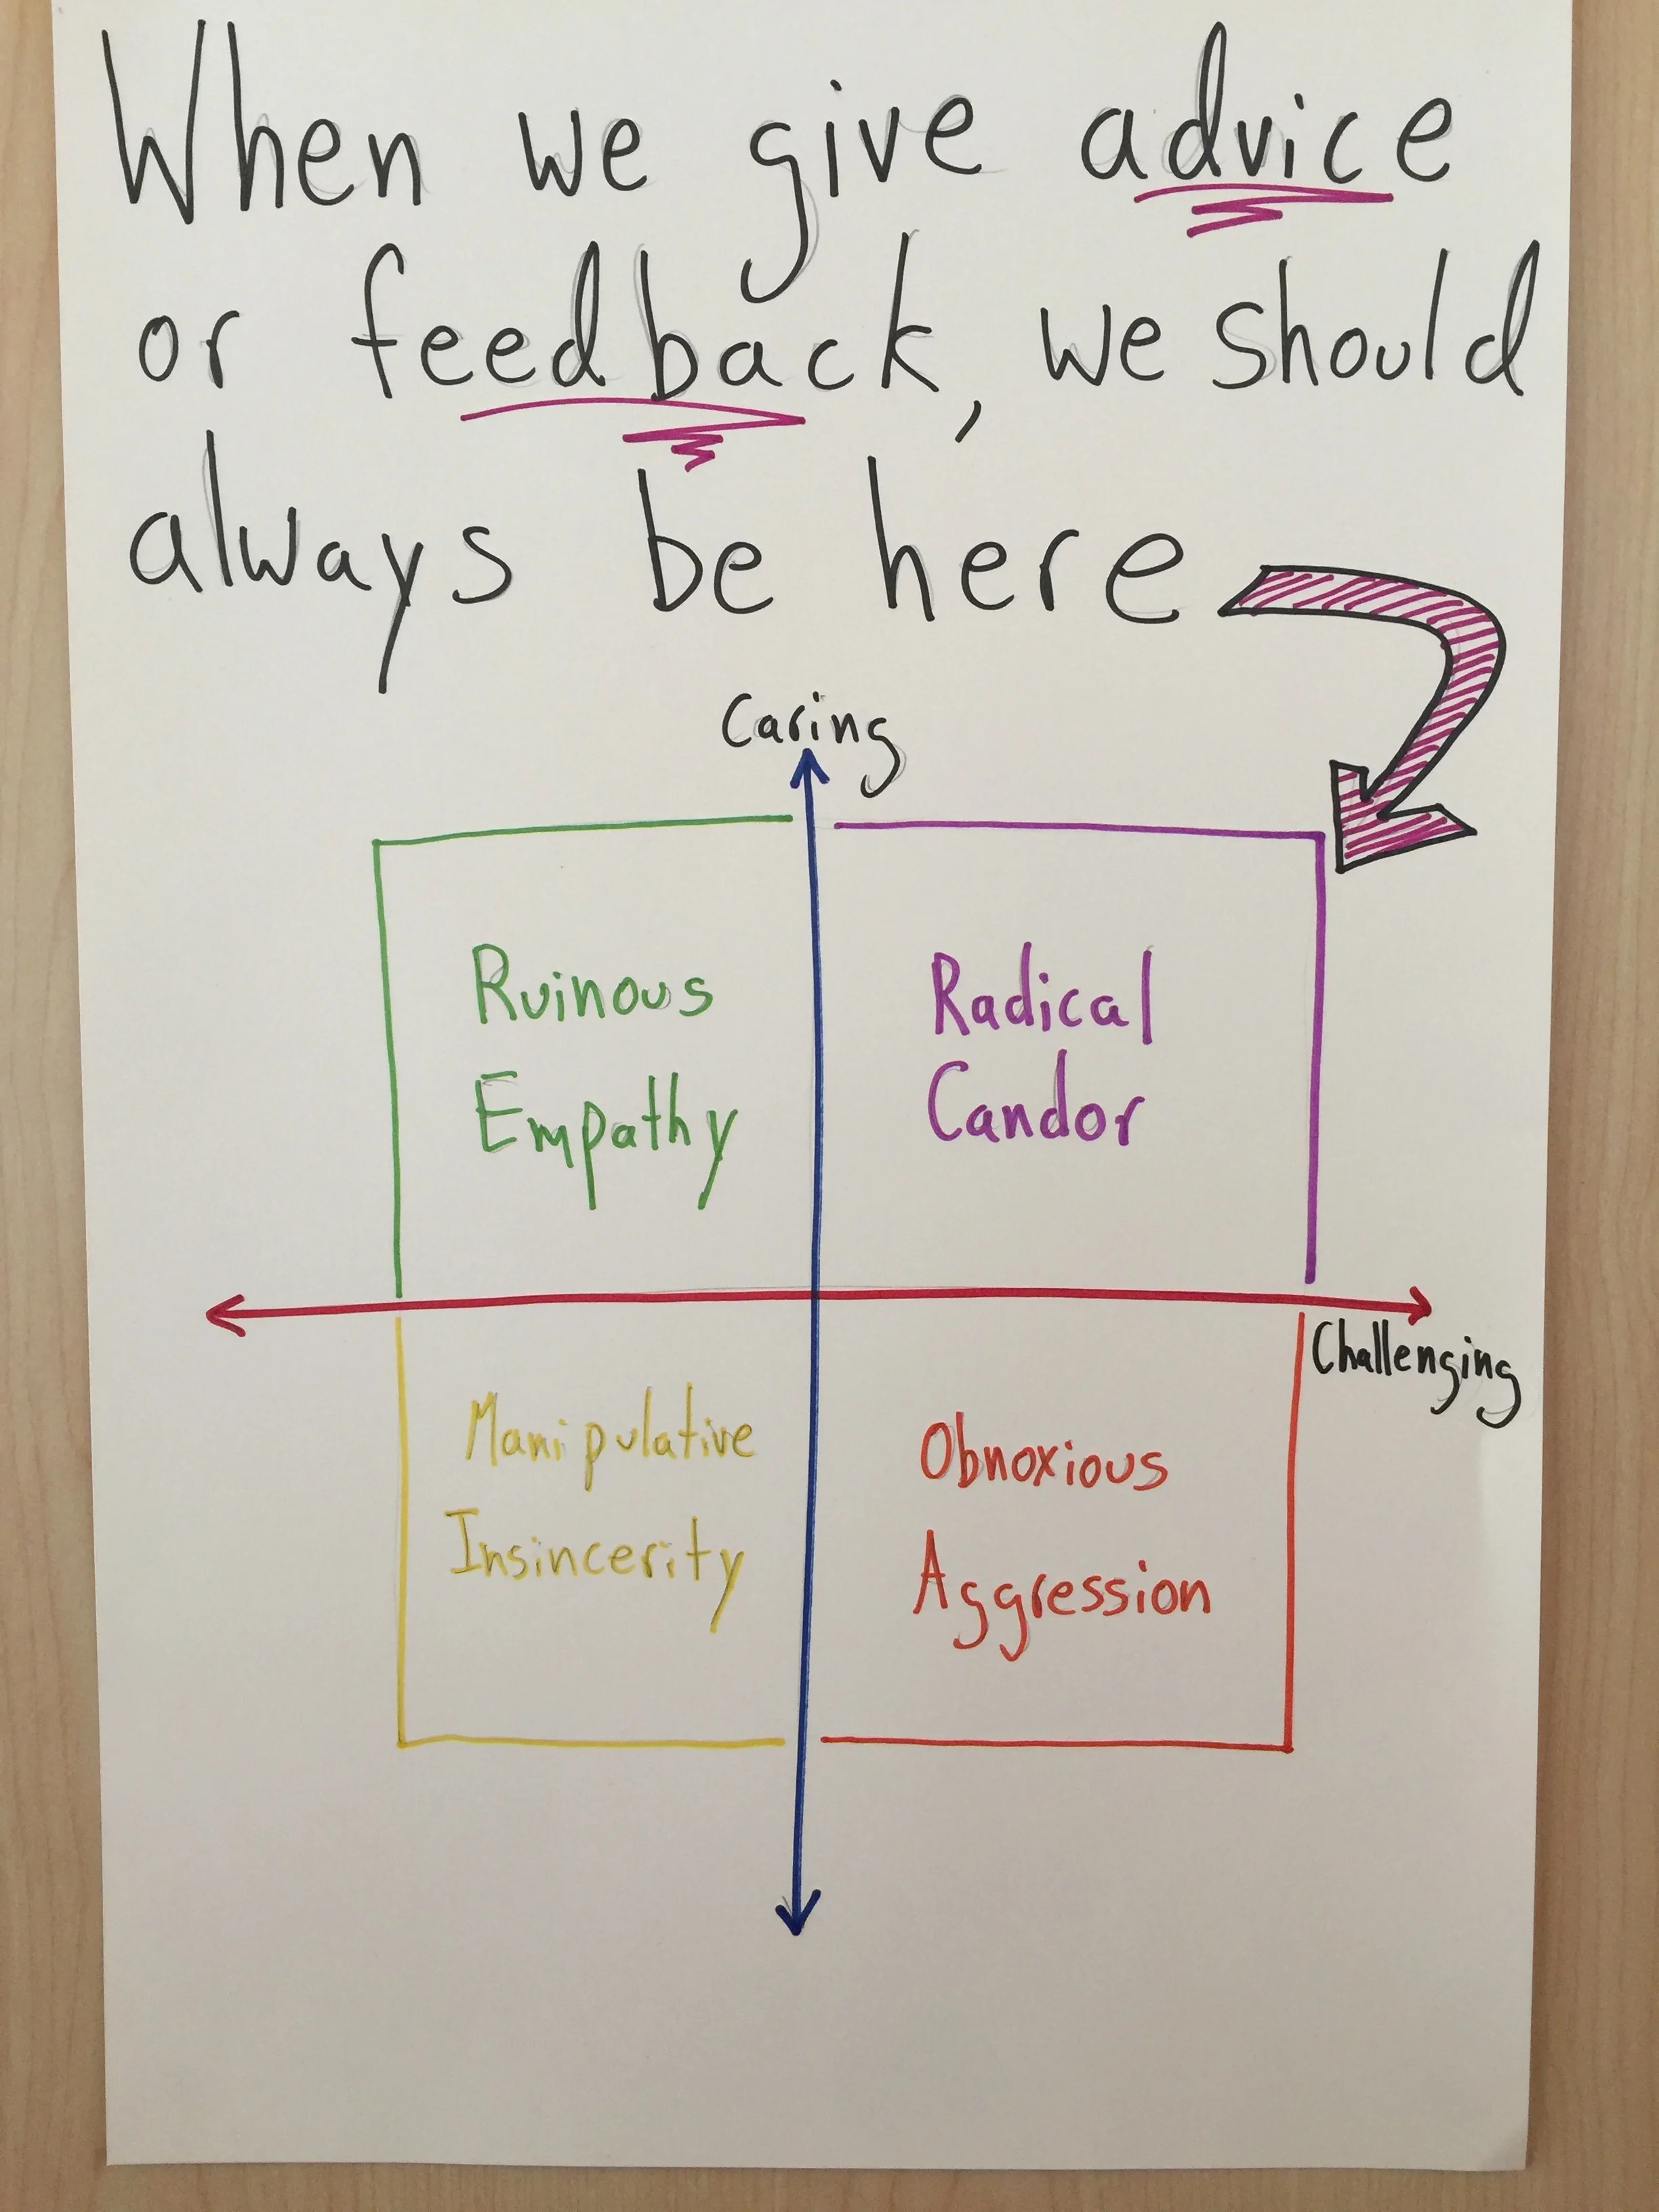 When we give advice
or feedback, we should
always be here
Caring
Ruinous
Empathy
Radical
Candor
Challenging
Manipulative
Insincerity
Obnoxious
Aggression